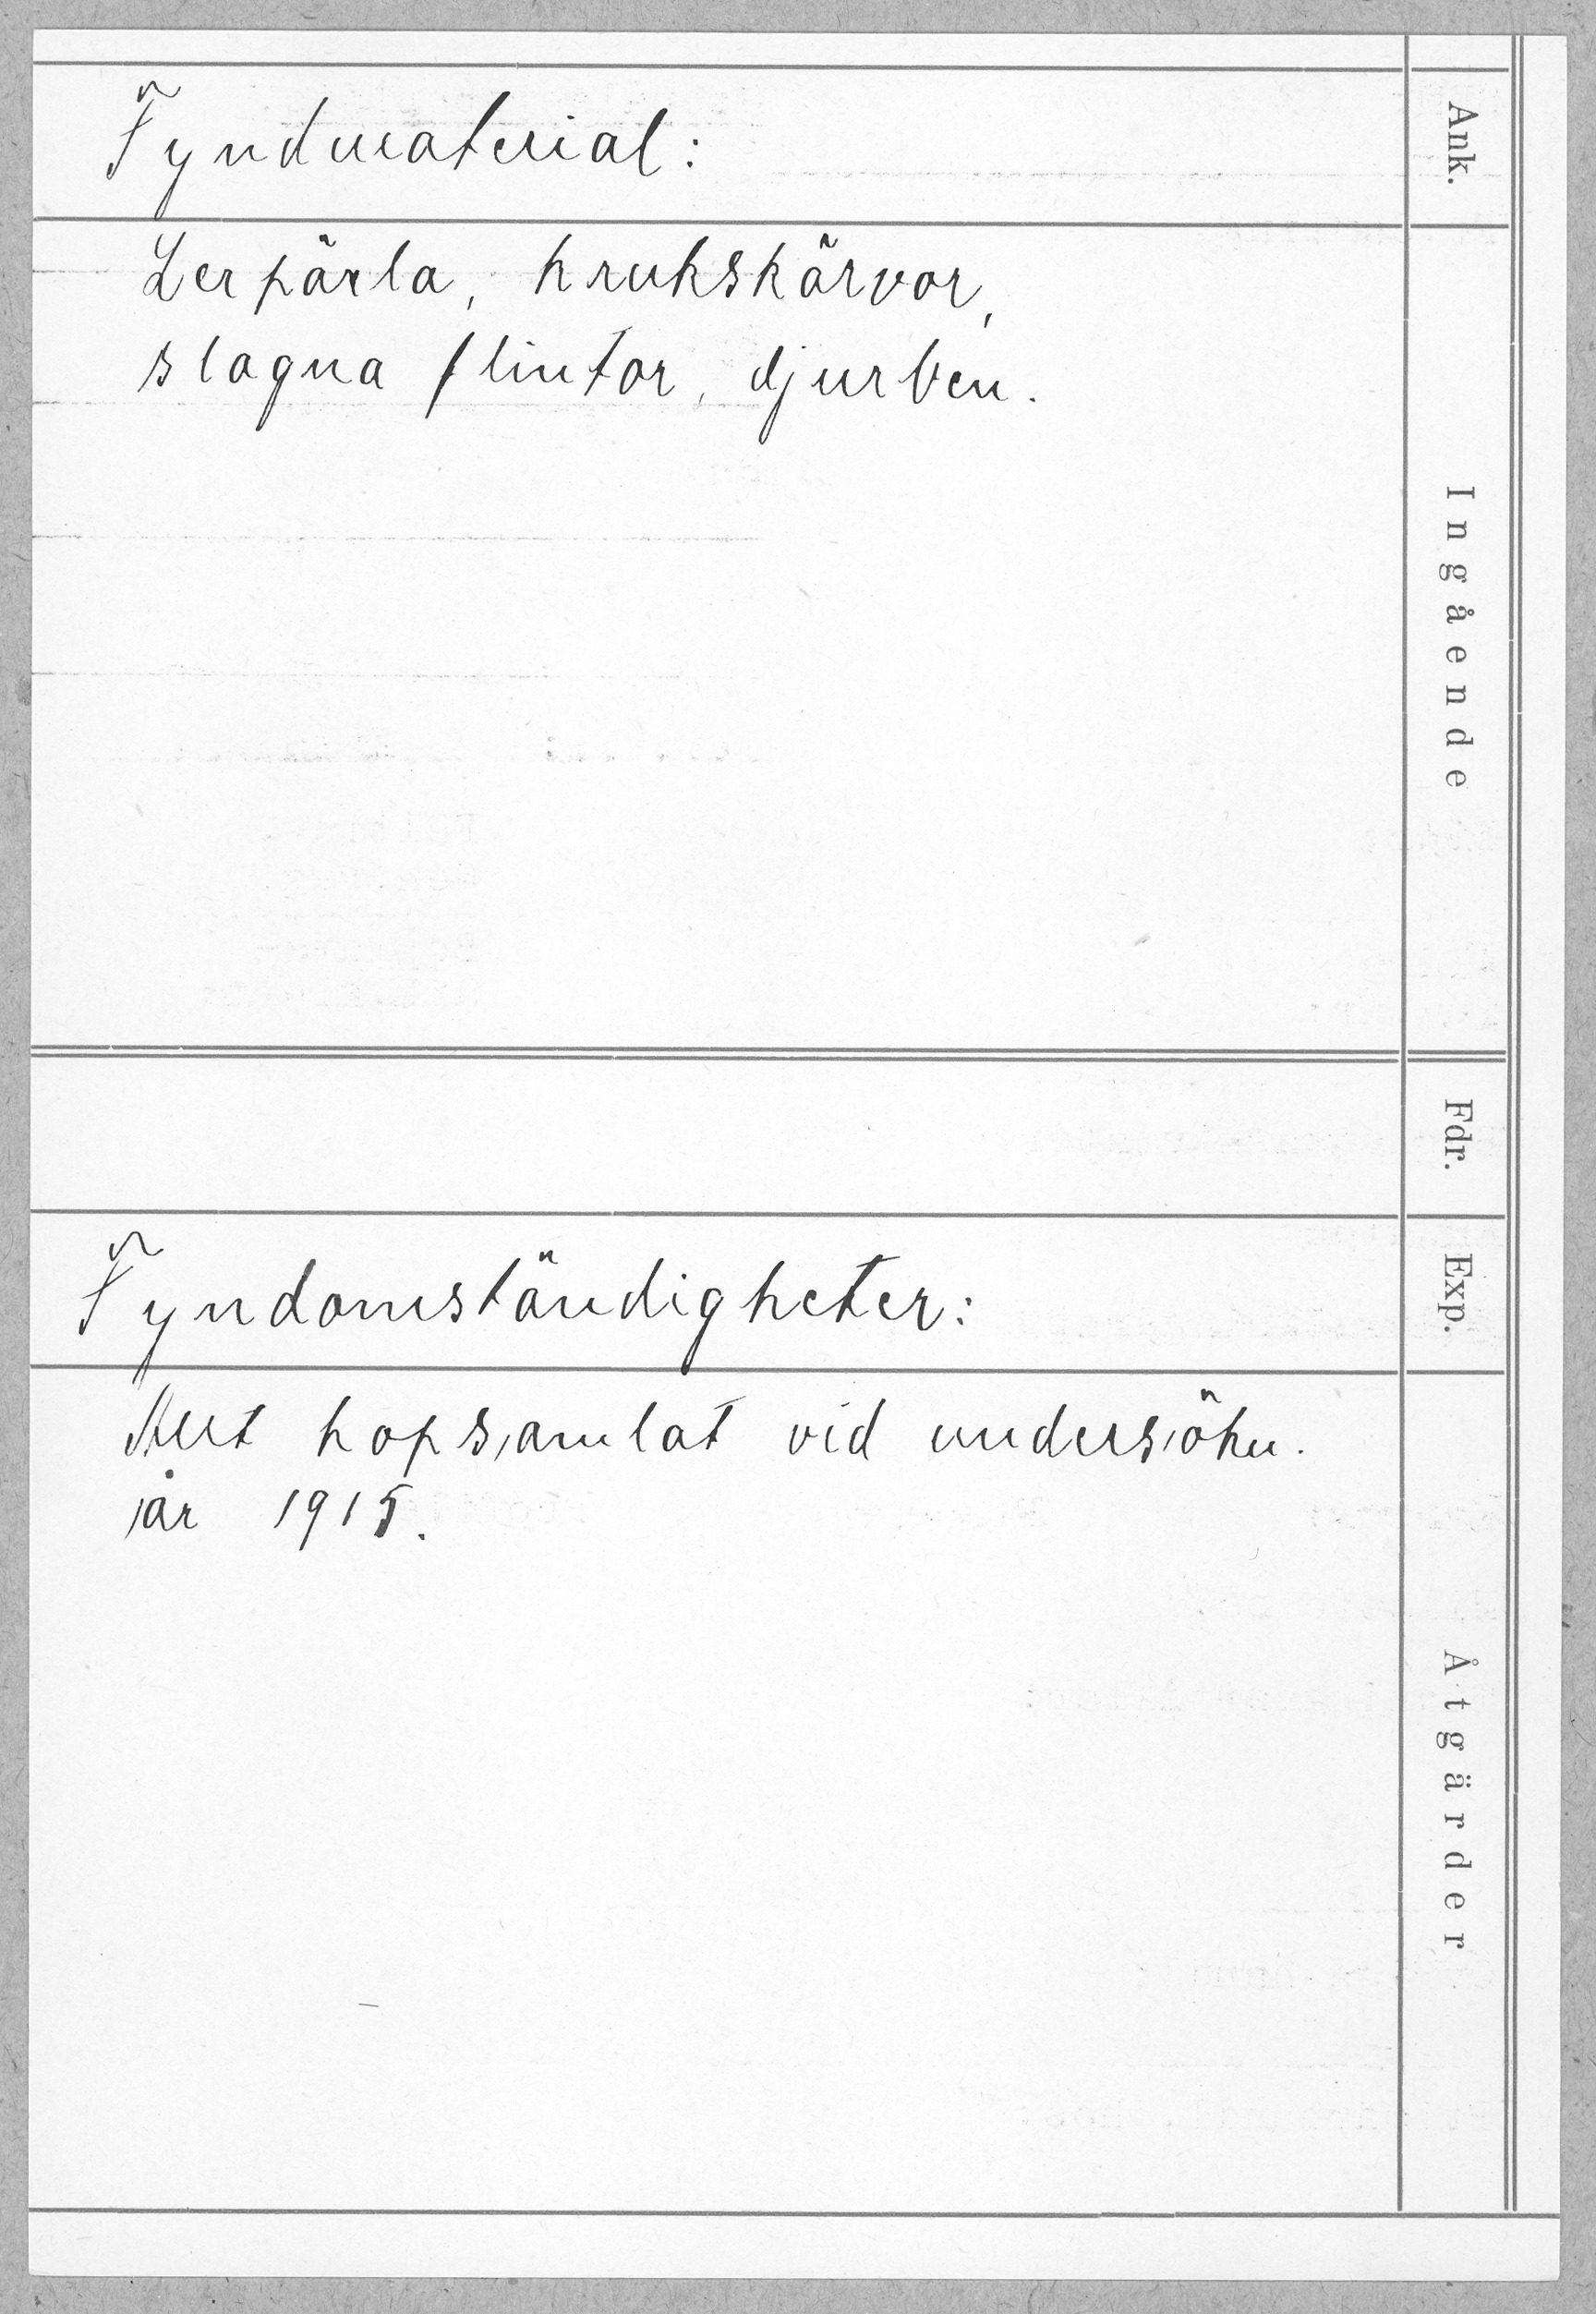 Fyndmaterial:
Lerpärla, krukskärvor,
slagna flintor, djurben.
Fyndomständigheter:
hopsamlat vid undersökn.
år 1915.
Ank.
Ingående
Fdr.
Exp.
Åtgärder